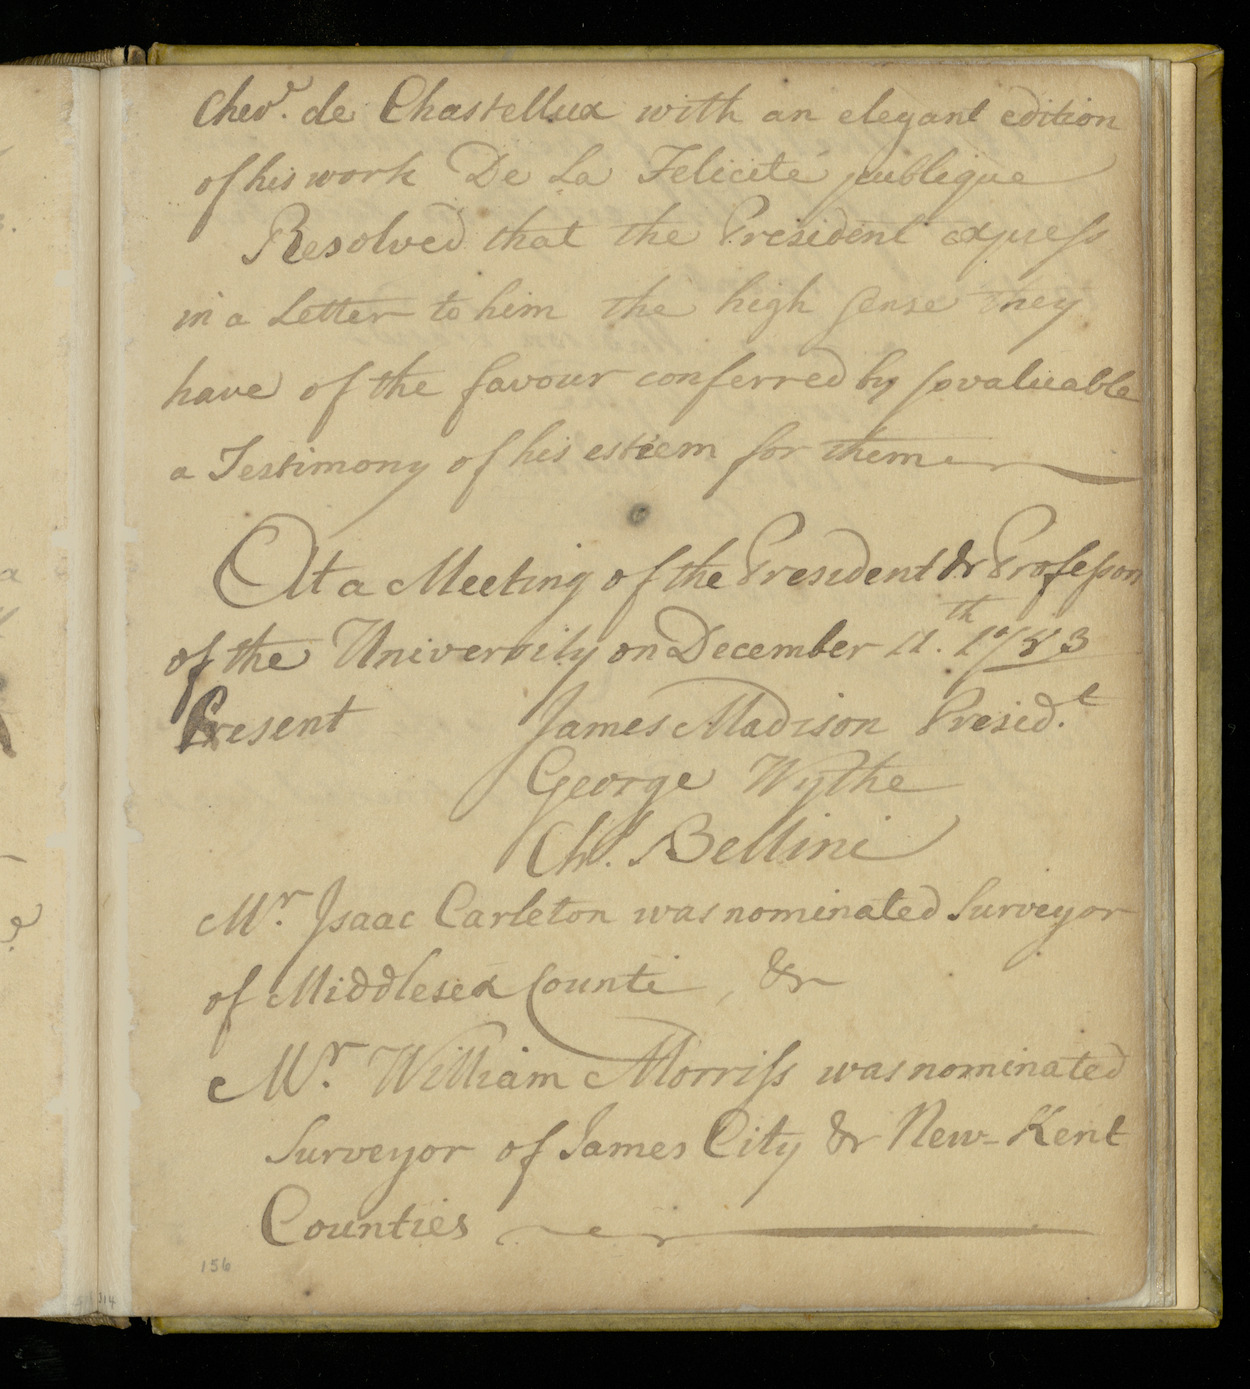 Chevr. de Chastellux with an elegant edition
of his work De La Felicité publique
Resolved that the President express
in a Letter to him the high sense they
have of the favour conferred by so valuable
a Testimony of his esteem for them
At a Meeting of the President & Professors
of the University on December 11.th 1783
Present James Madison Presid.t
George Wythe
Chs. Bellini
Mr. Isaac Carleton was nominated Surveyor
of Middlesex Counti, &
Mr. William Morriss was nominated
Surveyor of James City & New-Kent
Counties
156